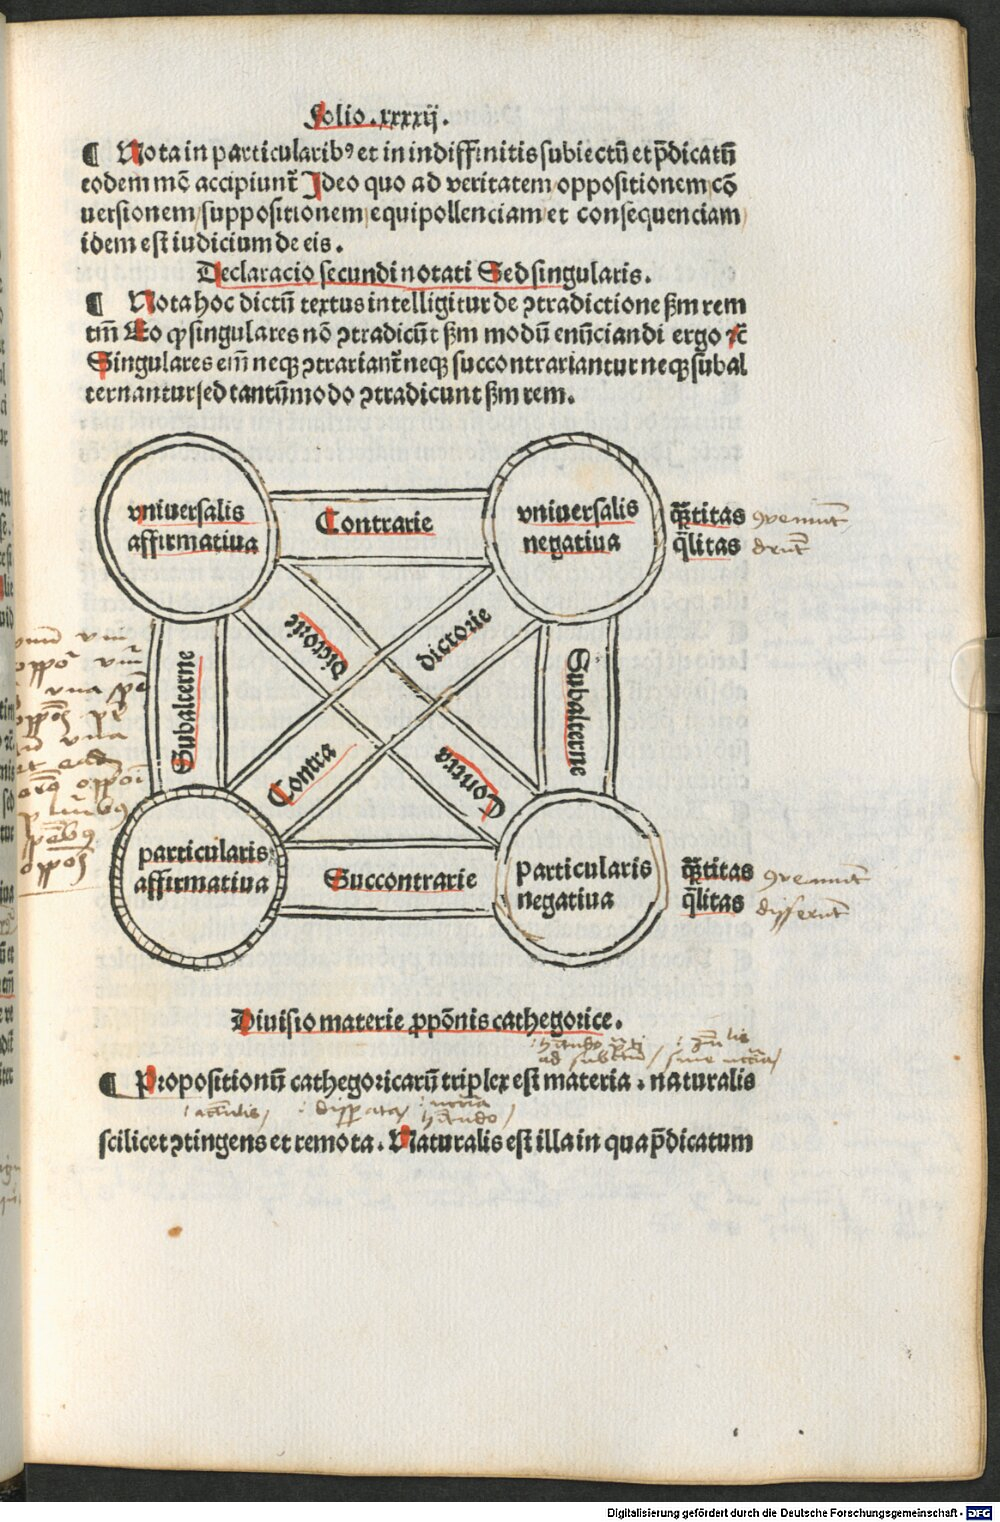 Folio.xxxxij.
¶ Nota in particularibꝰ et in indiffinitis subiectū et p̄dicatū
eodem mō accipiunt᷑ Ideo quo ad veritatem oppositionem cō
uersionem suppositionem equipollenciam et consequenciam
idem est iudicium de eis.
Declaracio secundi notati Sed singularis.
¶ Nota hoc dictū textus intelligitur de ꝯtradictione ẜm rem
tm̄ Eo ꝙ singulares nō ꝯtradicūt ẜm modū enūciandi ergo ⁊c̄
Singulares em̄ neqꝫ ꝯtrariant᷑ neqꝫ succontrariantur neqꝫ subal
ternantur sed tantūmodo ꝯtradicunt ẜm rem.
vniuersalis
affirmatiua
Contrarie
vniuersalis
negatiua
q̄titas ꝯveniūt
q̄litas
dictorie
dictorie
Subalterne
Subalterne
Contra
Contra
particularis
affirmatiua
Succontrarie
particularis
negatiua
q̄titas ꝯveniūt
q̄litas differūt
Diuisio materie ꝓpōnis cathegorice.
¶ Propositionū cathegoricarū triplex est materia. naturalis
scilicet ꝯtingens et remota. Naturalis est illa in qua p̄dicatum
Digitalisierung gefördert durch die Deutsche Forschungsgemeinschaft - DFG